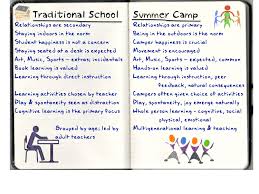 Traditional School
Relationships are secondary
Staying indoors in the norm
Student happiness is not a concern
Staying seated at a desk is expected
Art, Music, Sports - extras; incidentals
Book learning is valued
Learning through direct instruction
Learning activities chosen by teacher
Play & spontaneity seen as distraction
Cognitive learning is the primary focus
Grouped by age; led by
adult teachers
Summer Camp
Relationships are primary
Being in the outdoors is the norm
Camper happiness is crucial
Movement is encouraged
Art, Music, Sports - expected, common
Hands-on learning is valued
Learning through instruction, peer
feedback, natural consequences
Campers often given choice of activities
Play, spontaneity, joy emerge naturally
Whole person learning - cognitive, social,
physical, emotional
Multigenerational learning & teaching